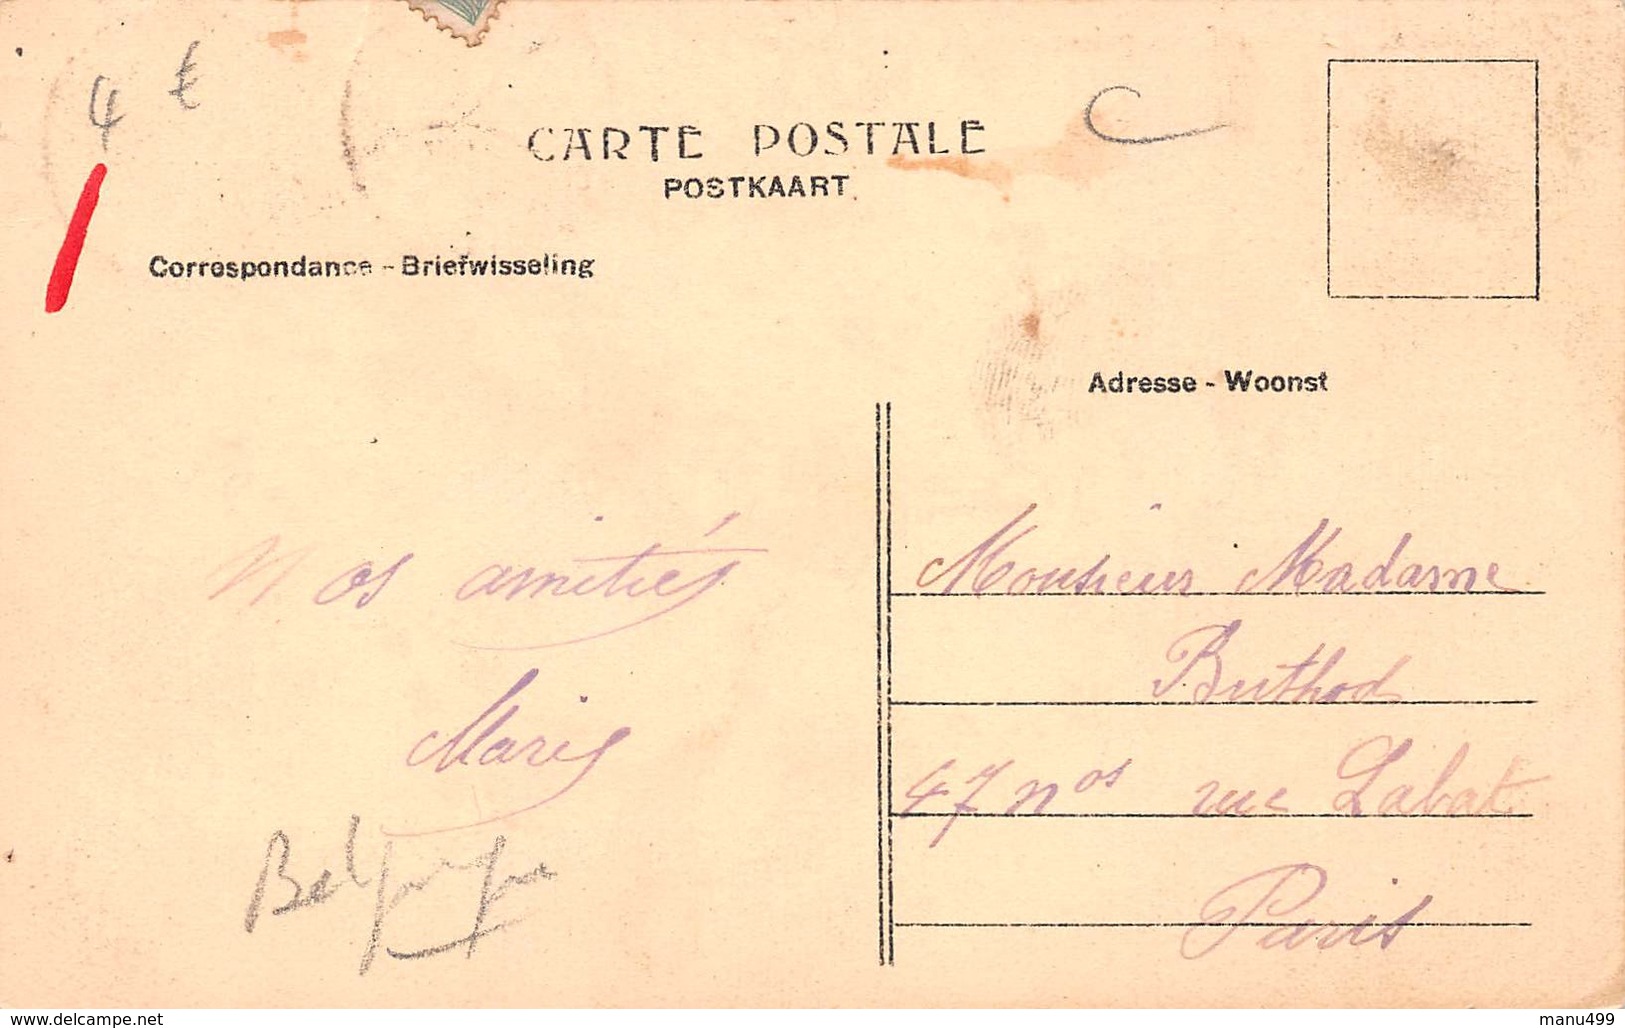 4 €
C
CARTE POSTALE
POSTKAART
Correspondance - Briefwisseling
Adresse - Woonst
Nos amitiés
Marie
Belgique
Monsieur Madame
Buthod
47 nos rue Labat
Paris
www.delcampe.net
manu499